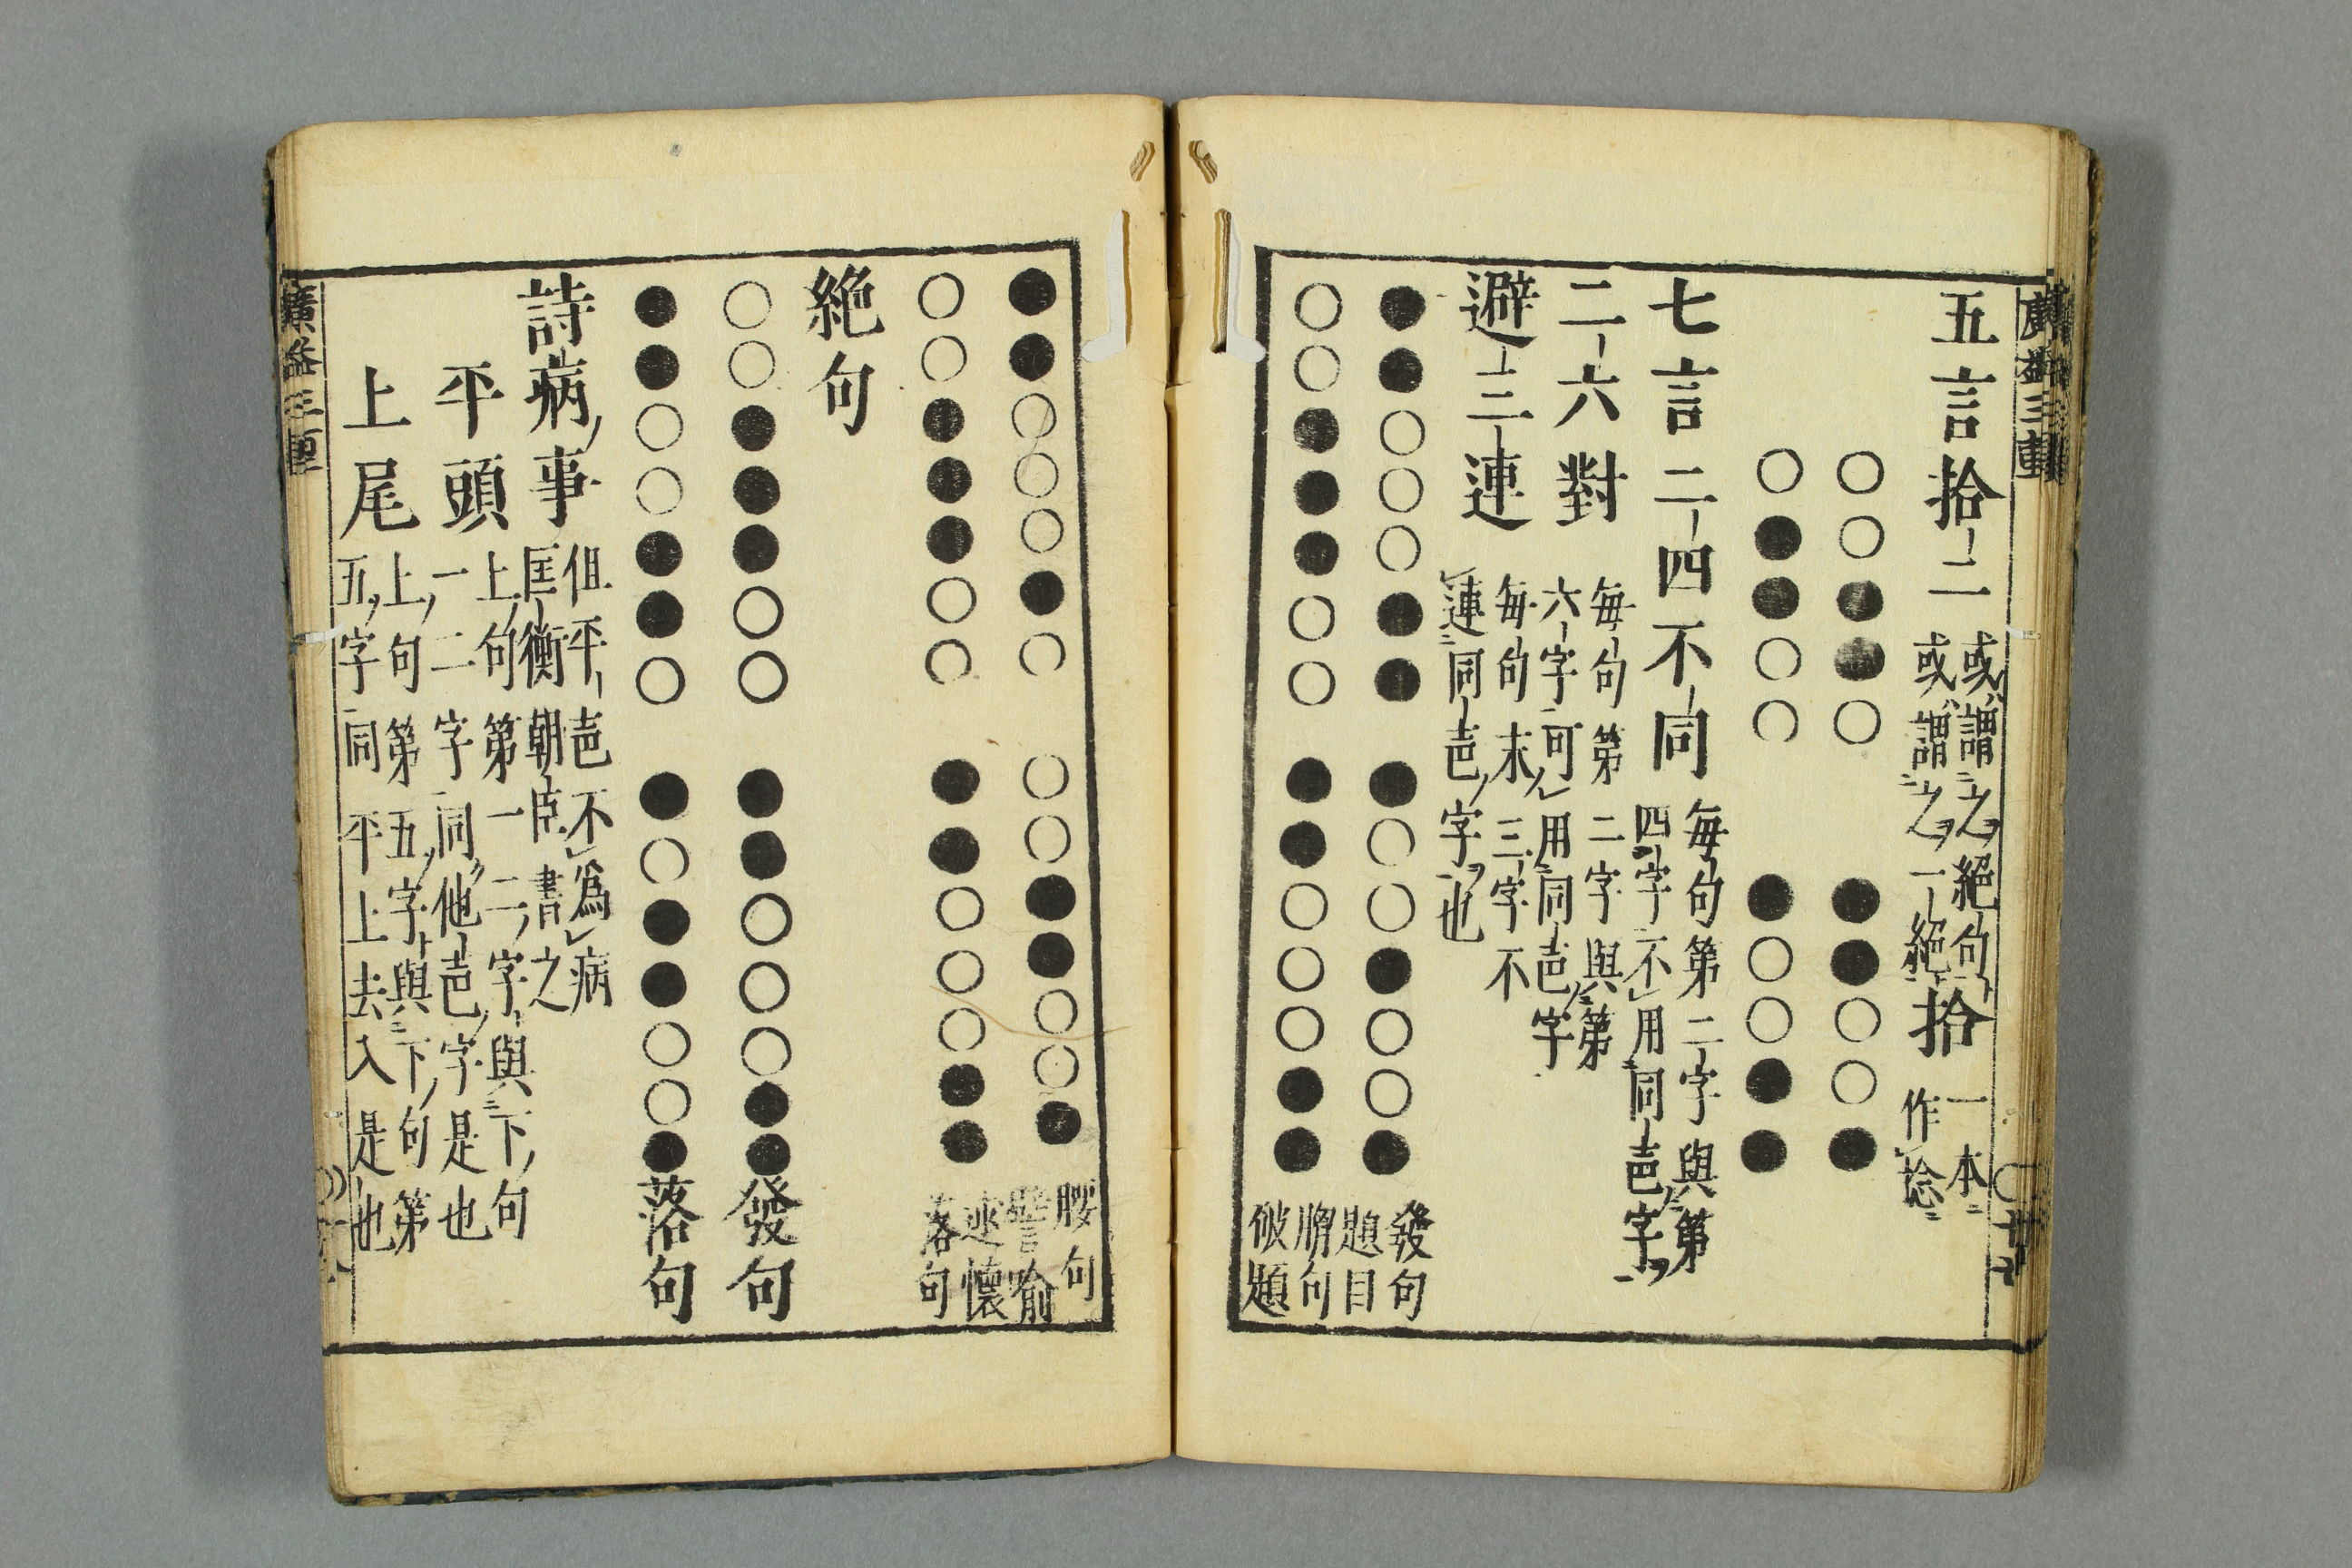 五言拾二 或謂之絕句 或謂之一絕 拾 一本 作捻
○○●●○ ●●○○●
○●●○○ ●○○●●
七言二四不同 每句第二字與第 四字不用同𠯁字
二六對 每句第二字與第 六字可用同𠯁字
避三連 每句末三字不 連同𠯁字也
●●○○○●● ●○○●○○● 發句 題目
○○●●●○○ ●●○○○●● 胸句 破題
●●○○○●○ ○○●●○○● 腰句 譬喻
○○●●●○○ ●●○○○●● 述懷 落句
絕句
○○●●●○○ ●●○○○●● 發句
●●○○●●○ ●○●●○○● 落句
詩病事 但平𠯁不為病 匡衡朝臣書之
平頭 上句第一二字與下句 一二字同他𠯁字是也
上尾 上句第五字與下句第 五字同平上去入是也
廣益三重